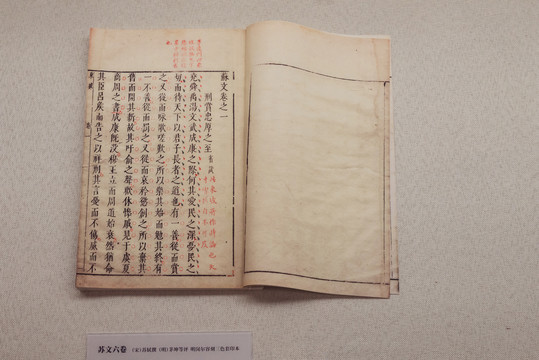 蘇文卷之一
刑賞忠厚之至
堯舜禹湯文武成康之際何其愛民之深憂民之
切而待天下以君子長者之道也有一善從而賞
之又從而咏歌嗟歎之所以樂其始而勉其終有
一不善從而罰之又從而哀矜懲創之所以棄其
舊而開其新故其吁俞之聲歡休慘戚見于虞夏
商周之書成康既沒穆王立而周道始衰然猶命
其臣呂矦而告之以祥刑其言憂而不傷威而不
苏文六卷 (宋)苏轼撰 (明)茅坤等评 明闵尔容刻三色套印本